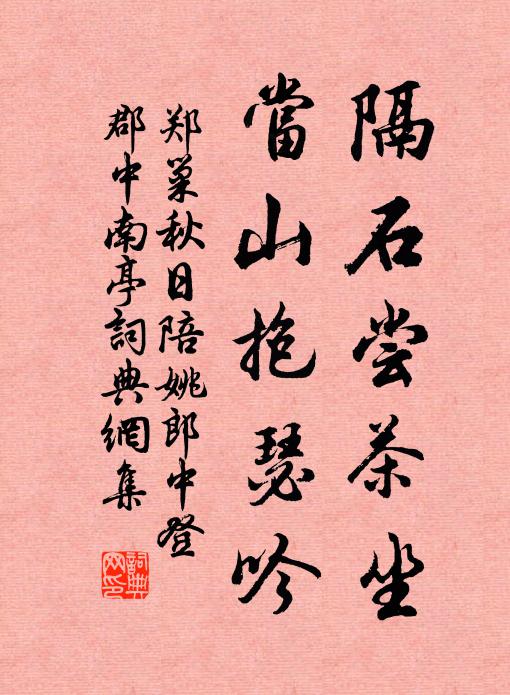 隔石尝茶坐
當山抱瑟吟
郑巢秋日陪姚郎中登
郡中南亭詞典網集
詞典网印